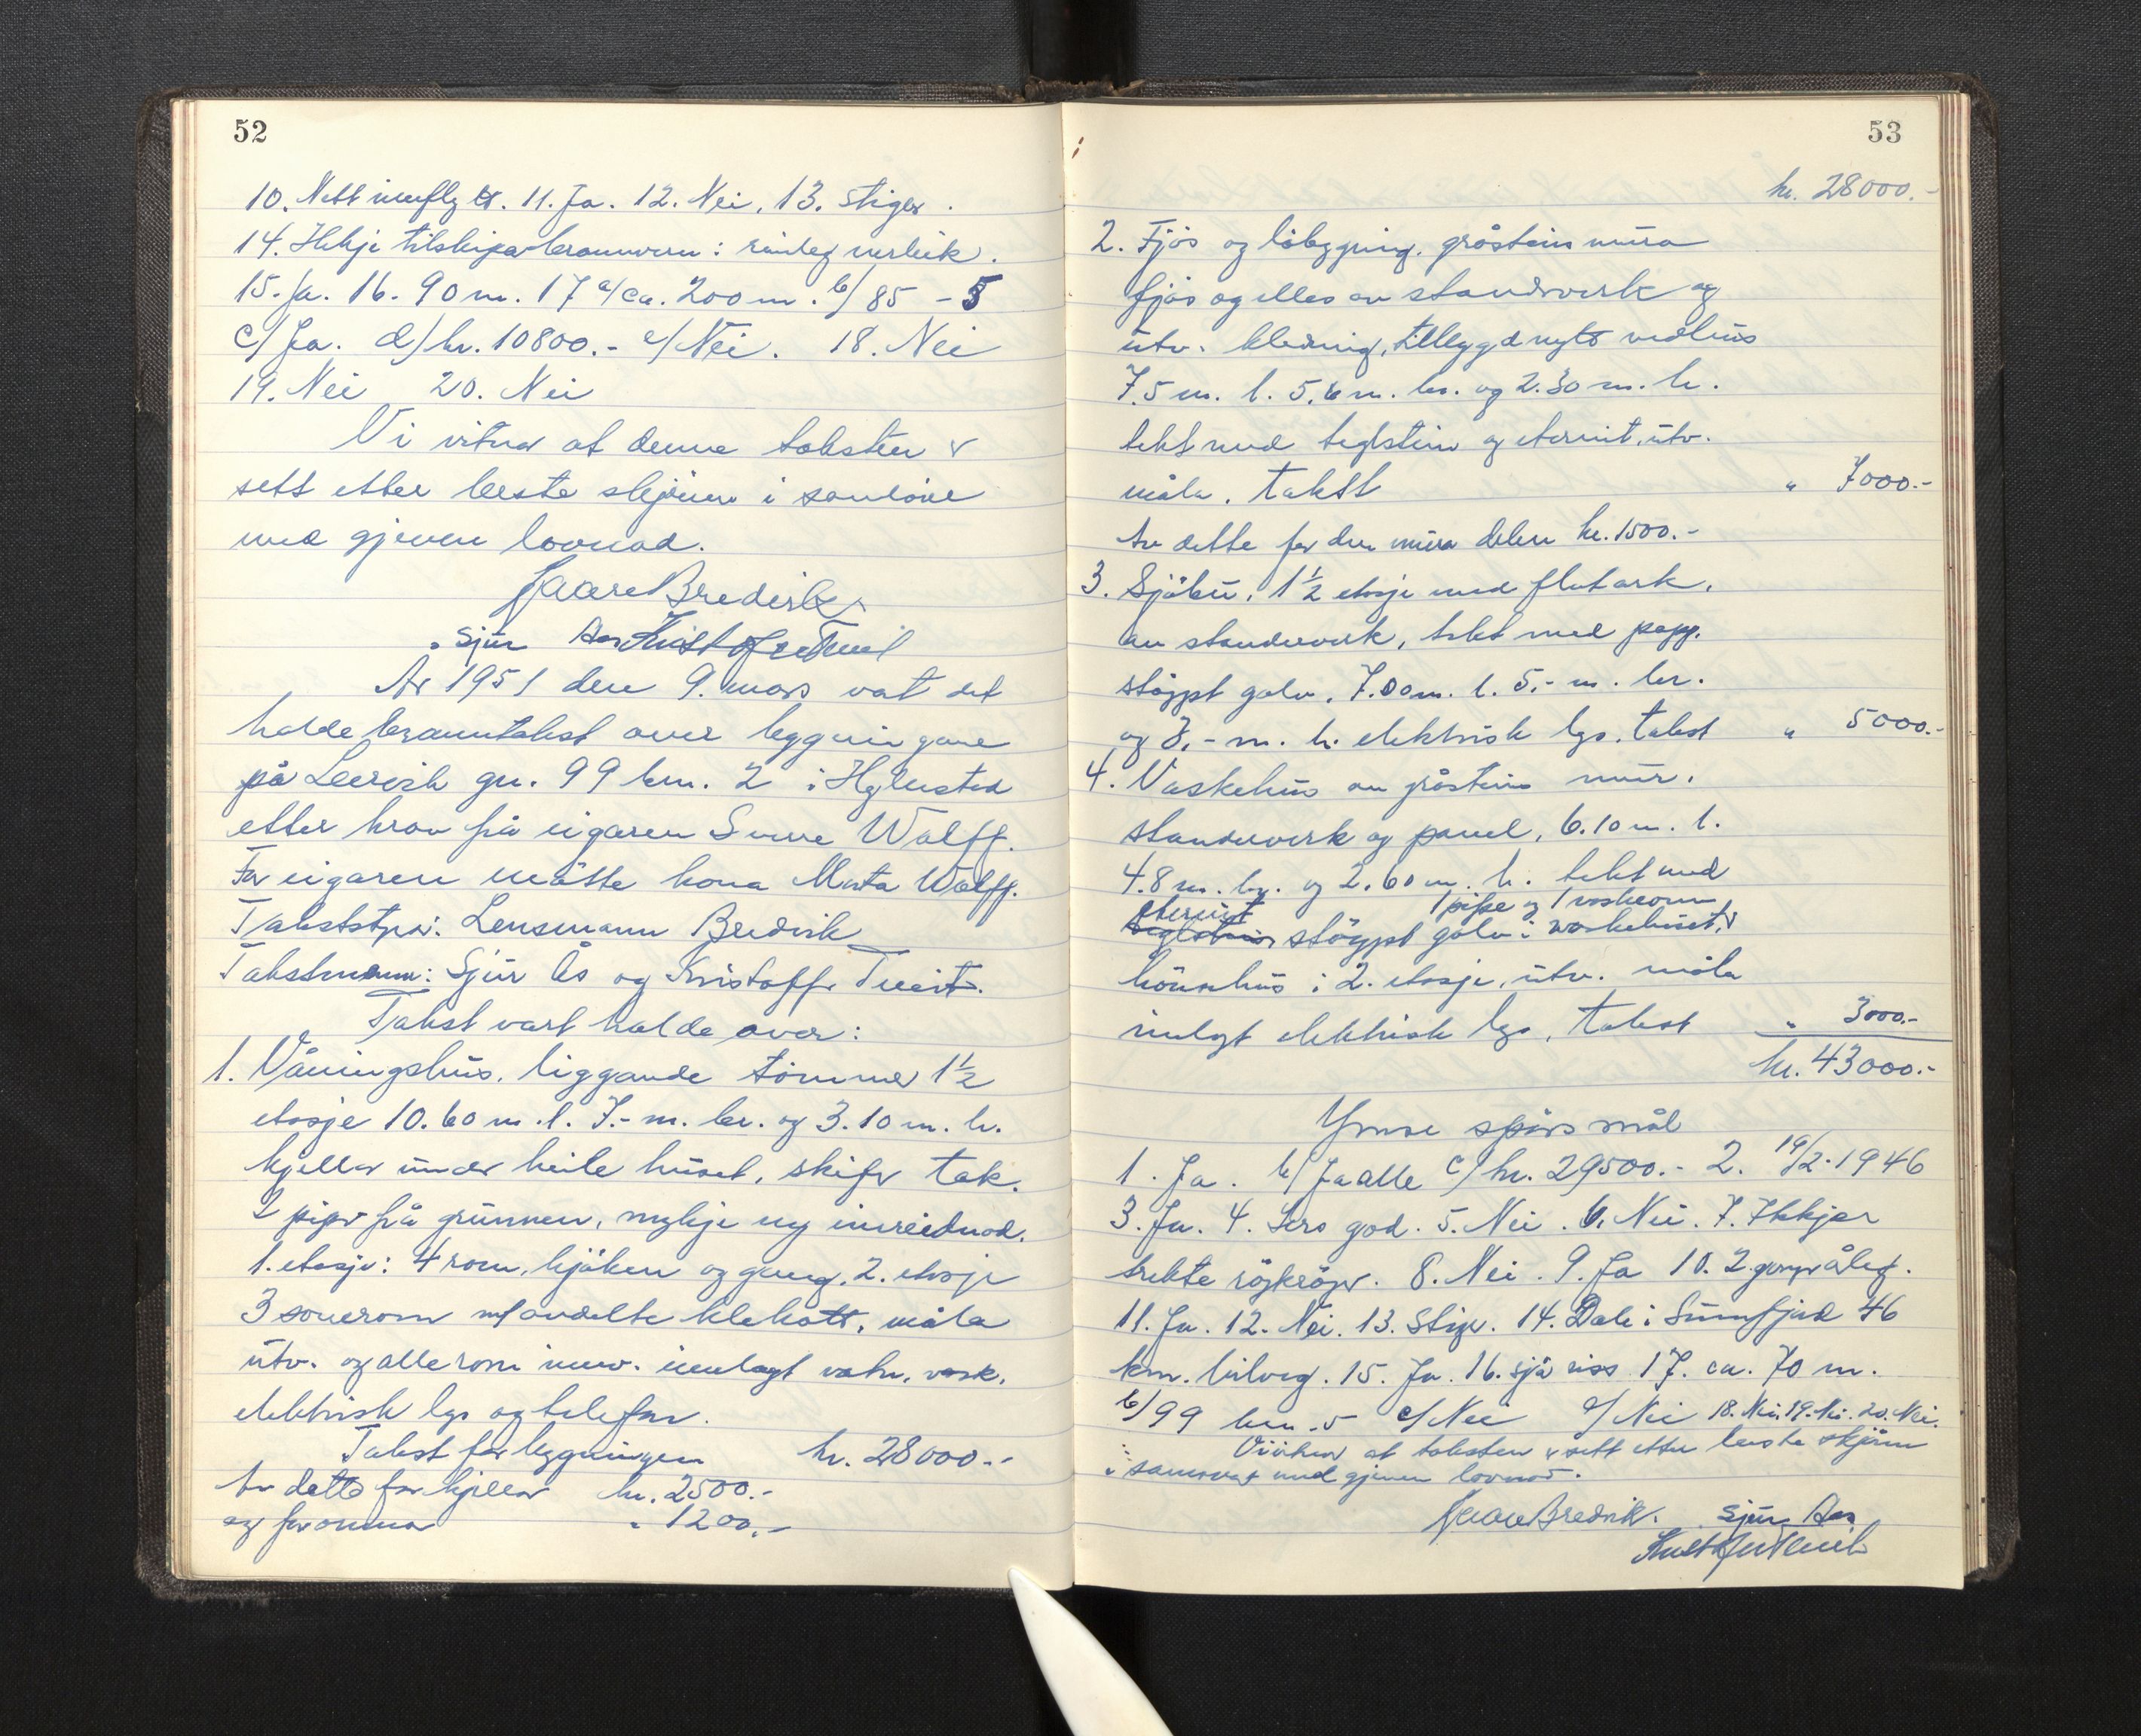 52
10. Nett innfly tt. 11. Ja. 12. Nei. 13. Stiger.
14. Ikkje tilskipa brannvern: rimeleg
15. Ja. 16. 90 m. 17 a/ ca. 200 m. b/ 85 - 5
c/ Ja. d/ kr. 10800.- e/ Nei. 18. Nei
19. Nei 20. Nei
Vi vitnar at denne taksten er
sett etter beste skjönn i samhöve
med gjeven lovnad.
Kaare Bredvik
Sjur Aas Kristoffer Tveit
År 1951 den 9. mars vart det
halde branntakst over bygningane
på Leirvik gn. 99 bn. 2 i Hyllestad
etter krav frå eigaren Sverre Wolff.
For eigaren mötte kona Marta Wolff.
Takststyrar: Lensmann Bredvik
Takstmenn: Sjur Ås og Kristoffer Tveit.
Takst vart halde over:
1. Våningshus, liggande tömmer 1½
etasje 10.60 m. l. 7.- m. br. og 3.10 m. h.
kjellar under heile huset, skifer tak.
2 piper frå grunnen, mykje ny innreidnad.
1. etasje: 4 rom, kjöken og gang. 2. etasje
3 soverom m/ avdelte klekott, måla
utv. og alle rom innv. innlagt vatn, vask,
elektrisk lys og telefon.
Takst for bygningen kr. 28000.-
Av dette for kjellar kr. 2500.-
og for omna " 1200.-
53
kr. 28000.-
2. Fjös og löbygning, gråsteins mura
fjös og elles av standverk og
utv. kledning, tilbygd nytt vedhus
7.5 m. l. 5.6 m. br. og 2.30 m. h.
tekt med teglstein og eternit, utv.
måla. Takst " 7000.-
Av dette for den mura delen kr. 1500.-
3. Sjöbu, 1½ etasje med flatark,
av standerverk, tekt med papp,
stöypt golv. 7.00 m. l. 5.- m. br.
og 3.- m. h. elektrisk lys. Takst " 5000.-
4. Vaskehus av gråsteins mur,
standerverk og panel, 6.10 m. l.
4.8 m. br. og 2.60 m. h. tekt med
1 pipe og 1 vaskeomn
eternit
teglstein stöypt golv i vaskehuset,
hönehus i 2. etasje, utv. måla
innlagt elektrisk lys, Takst " 3000.-
kr. 43000.-
Ymse spörsmål
1. Ja. b/ Ja alle c/ kr. 29500.- 2. 19/2-1946
3. Ja. 4. Sers god. 5. Nei. 6. Nei. 7. Ikkje
trekte röykröyr. 8. Nei. 9. Ja 10. 2 gonger årleg.
11. Ja. 12. Nei. 13. Stige. 14. Dale i Sunnfjord 46
km. bilveg. 15. Ja. 16. sjå riss 17. ca. 70 m.
b/ 99 bn. 5 c/ Nei d/ Nei 18. Nei. 19. Nei. 20. Nei.
Vi vitnar at taksten er sett etter beste skjönn
i samsvar med gjeven lovnad.
Kaare Bredvik. Sjur Aas
Kristoffer Tveit